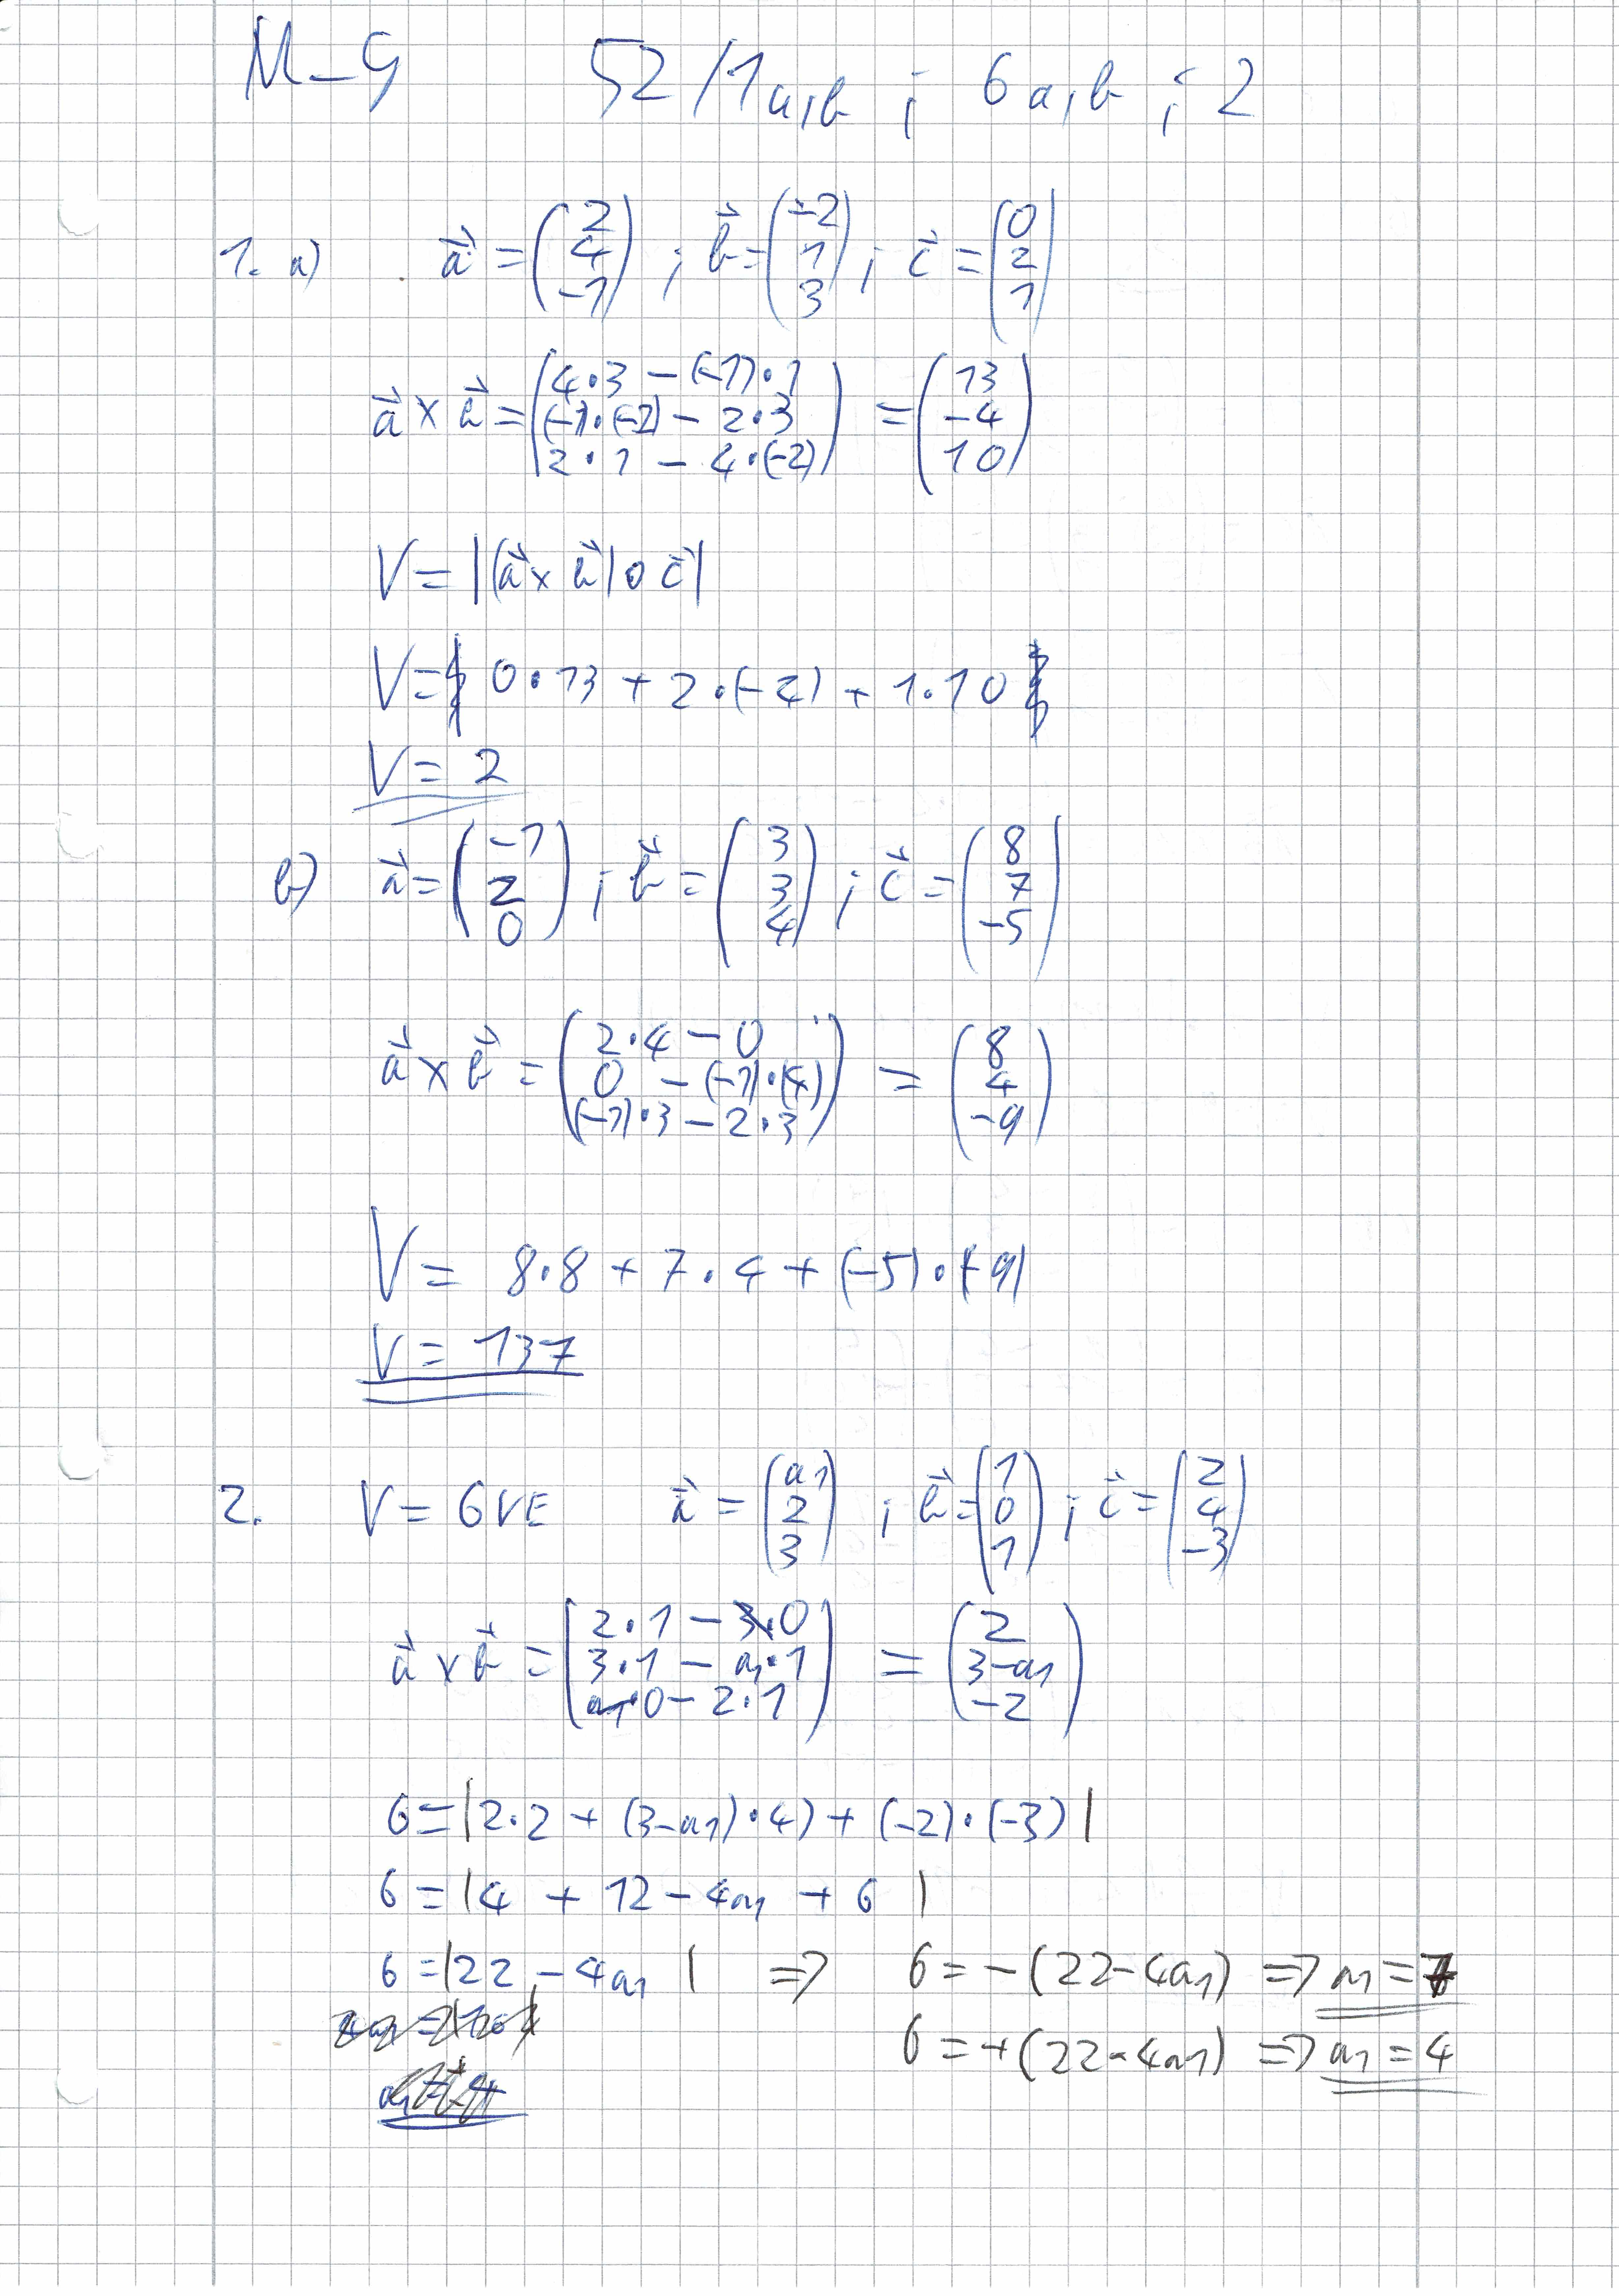 M-G 52/1a,b ; 6a,b ; 2
1. a) a⃗ = (2 4 -1) ; b⃗ = (-2 1 3) ; c⃗ = (0 2 1)
a⃗ × b⃗ = (4·3 - (-1)·1 (-1)·(-2) - 2·3 2·1 - 4·(-2)) = (13 -4 10)
V = |(a⃗ × b⃗) ∘ c⃗|
V = 0·13 + 2·(-4) + 1·10
V = 2
b) a⃗ = (-1 2 0) ; b⃗ = (3 3 4) ; c⃗ = (8 7 -5)
a⃗ × b⃗ = (2·4 - 0 0 - (-1)·(4) (-1)·3 - 2·3) = (8 4 -9)
V = 8·8 + 7·4 + (-5)·(-9)
V = 137
2. V = 6VE a⃗ = (a₁ 2 3) ; b⃗ = (1 0 1) ; c⃗ = (2 4 -3)
a⃗ × b⃗ = (2·1 - 3·0 3·1 - a₁·1 a₁·0 - 2·1) = (2 3-a₁ -2)
6 = |2·2 + (3-a₁)·4) + (-2)·(-3)|
6 = |4 + 12 - 4a₁ + 6|
6 = |22 - 4a₁| => 6 = -(22-4a₁) => a₁ = 7
6 = +(22-4a₁) => a₁ = 4